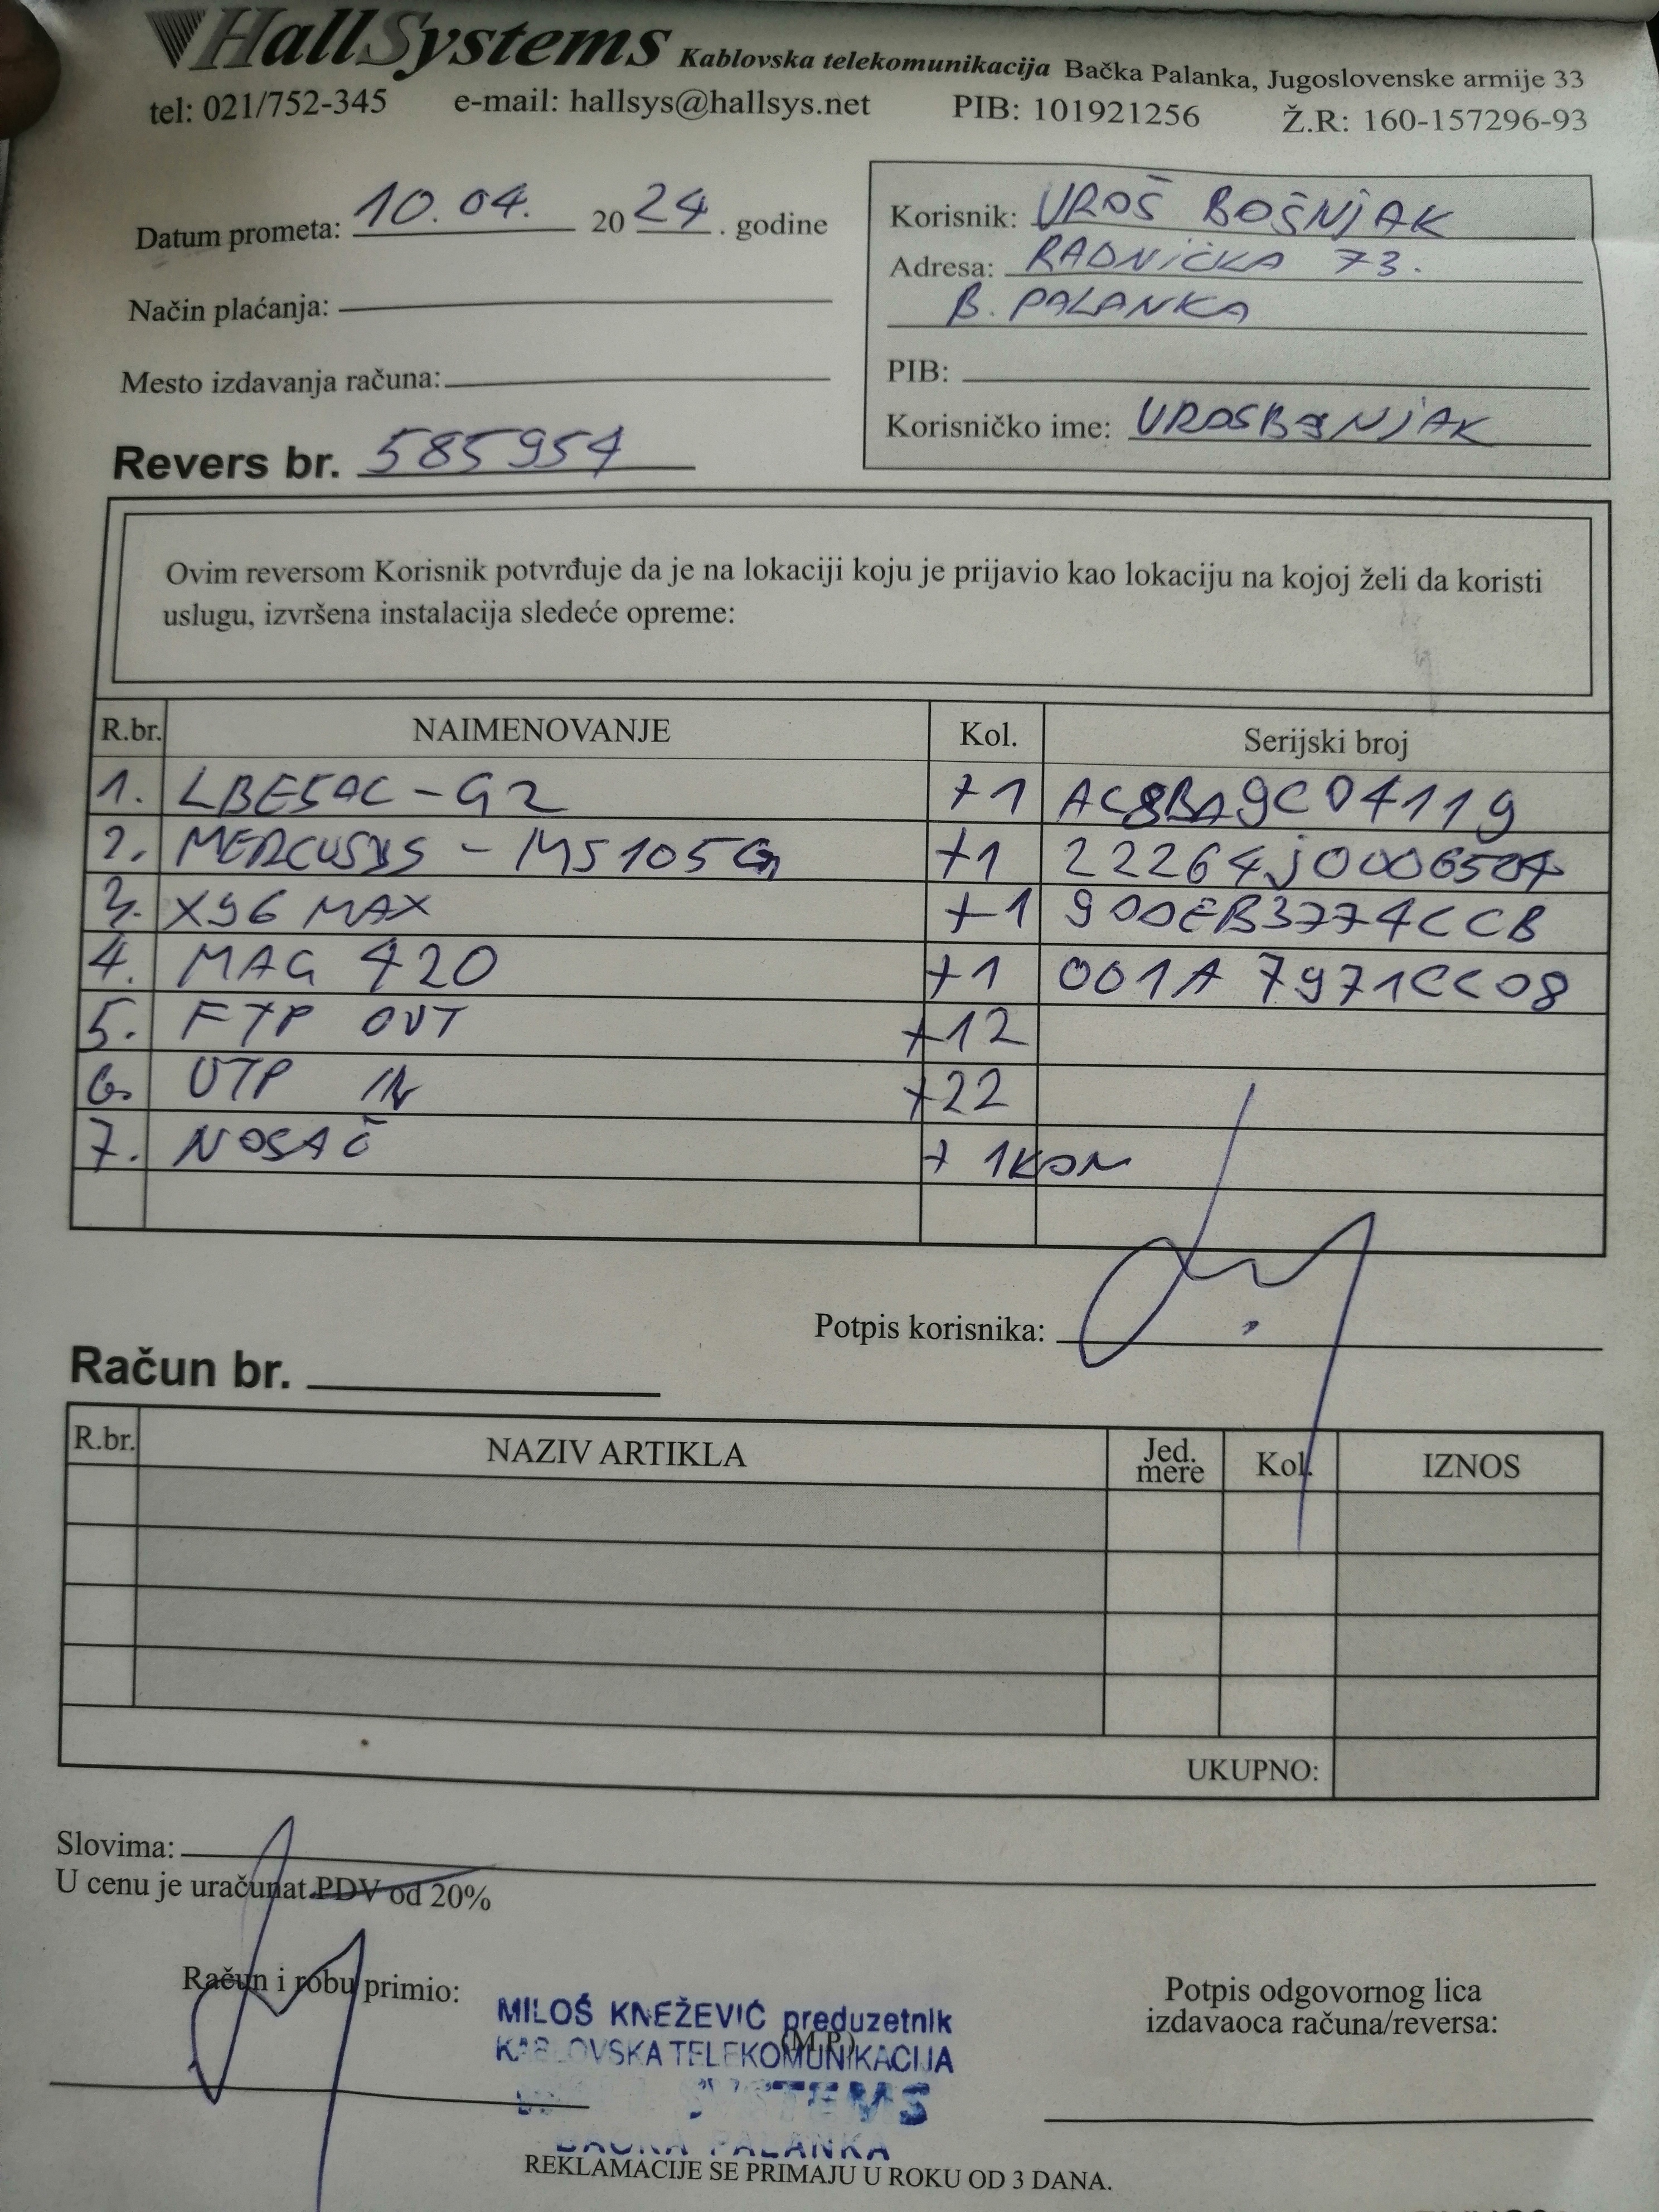 HallSystems Kablovska telekomunikacija Bačka Palanka, Jugoslovenske armije 33
tel: 021/752-345 e-mail: hallsys@hallsys.net PIB: 101921256 Ž.R: 160-157296-93
Datum prometa: 10.04. 2024. godine
Način plaćanja:
Mesto izdavanja računa:
Revers br. 585954
Korisnik: UROŠ BOŠNJAK
Adresa: RADNIČKA 73.
B. PALANKA
PIB:
Korisničko ime: UROSBOSNJAK
Ovim reversom Korisnik potvrđuje da je na lokaciji koju je prijavio kao lokaciju na kojoj želi da koristi
uslugu, izvršena instalacija sledeće opreme:
R.br. NAIMENOVANJE Kol. Serijski broj
1. LBE5AC-G2 +1 AC8BA9C04119
2. MERCUSYS - MS105G +1 22264J0006507
3. X96 MAX +1 900EB3774CCB
4. MAG 420 +1 001A7971CC08
5. FTP OUT +12
6. UTP IN +22
7. NOSAČ + 1KOM
Potpis korisnika:
Račun br.
R.br. NAZIV ARTIKLA Jed. mere Kol. IZNOS
UKUPNO:
Slovima:
U cenu je uračunat PDV od 20%
Račun i robu primio:
MILOŠ KNEŽEVIĆ preduzetnik
(M.P.)
KABLOVSKA TELEKOMUNIKACIJA
SYSTEMS
BAČKA PALANKA
Potpis odgovornog lica
izdavaoca računa/reversa:
REKLAMACIJE SE PRIMAJU U ROKU OD 3 DANA.